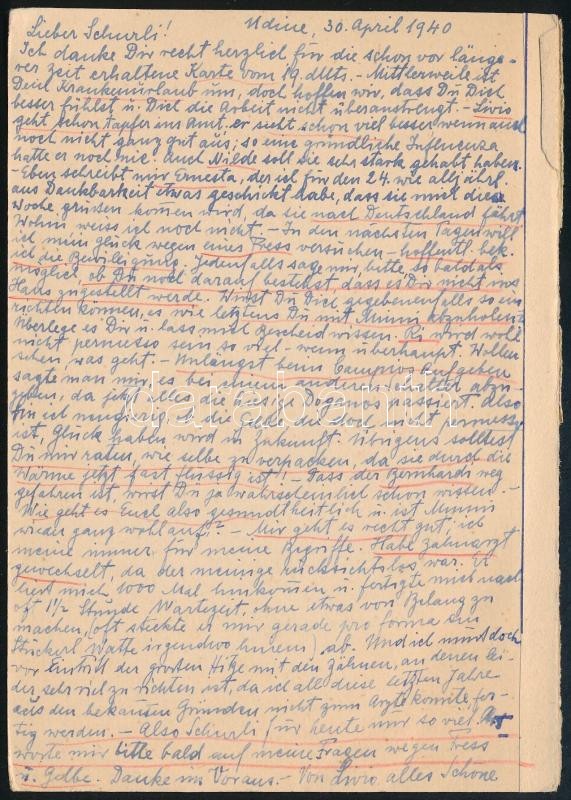 Udine, 30. April 1940
Lieber Schurli!
Ich danke Dir recht herzlich für die schon vor länge-
rer Zeit erhaltene Karte vom 19. d. Mts. - Mittlerweile ist
Dein Krankenurlaub um, doch hoffen wir, dass Du Dich
besser fühlst u. Dich die Arbeit nicht überanstrengt. - Livio
geht schon tapfer ins Amt. er sieht schon viel besser wenn auch
noch nicht ganz gut aus; so eine gründliche Influenza
hatte er noch nie. Auch Nilde soll sie sehr stark gehabt haben.
- Eben schreibt mir Ernesta, der ich für den 24. wie alljährl.
aus Dankbarkeit etwas geschickt habe, dass sie mich diese
Woche grüssen kommen wird, da sie nach Deutschland fährt
Wohin weiss ich noch nicht. - In den nächsten Tagen will
ich mein Glück wegen eines Fress versuchen - hoffentl. bek.
ich die Bewilligung. Jedenfalls sage mir, bitte, so bald als
möglich, ob Du noch darauf bestehst, dass es Dir nicht ins
Haus zugestellt werde. Wirst Du Dich gegebenenfalls so ein-
richten können, es, wie letztens Du mit Mimmi abzuholen?
Überlege es Dir u. lass mich Bescheid wissen. Ri wird wohl
nicht permesso sein so viel - wenn überhaupt. Wollen
sehen, was geht. - Unlängst beim Campione aufgeben
sagte man mir, es bei einem anderen Schalter abzu-
geben, da jetzt alles die hiesige Dogana passiert. Also
bin ich neugierig ob die Gelbe die doch nicht permess.
ist, Glück haben wird in Zukunft. Übrigens solltest
Du mir raten, wie selbe zu verpacken, da sie durch die
Wärme jetzt fast flüssig ist! - Dass der Bernhardi weg
gefahren ist, wirst Du ja wahrscheinlich schon wissen. -
Wie geht es Euch also gesundheitlich u. ist Mimmi
wieder ganz wohlauf? - Mir geht es recht gut, ich
meine immer für meine Begriffe. Habe Zahnarzt
gewechselt, da der meinige rücksichtslos war. Er
liess mich 1000 Mal hinkommen u. fertigte mich nach
oft 1½ Stunde Wartezeit, ohne etwas von Belang zu
machen, (oft steckte er mir gerade pro forma ein
Stückerl Watte irgendwo hinein) ab. Und ich muss doch
vor Eintritt der grossen Hitze mit den Zähnen, an denen lei-
der sehr viel zu richten ist, da ich all diese letzten Jahre
aus den bekannten Gründen nicht zum Arzte konnte fer-
tig werden. - Also Schurli für heute nur so viel. Ant-
worte mir bitte bald auf meine Fragen wegen Fress
u. Gelbe. Danke im Voraus. - Von Livio alles Schöne
darabanth